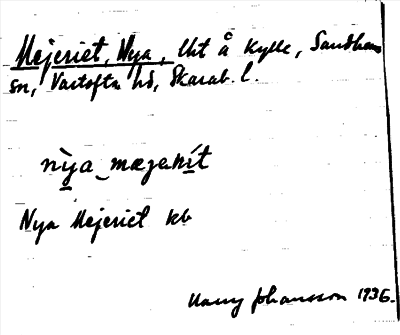 Mejeriet, Nya, lht å Kylle, Sandhem
sn, Vartofta hd, Skarab. l.
nỳa mæjerít
Nya Mejeriet kb
Harry Johansson 1936.